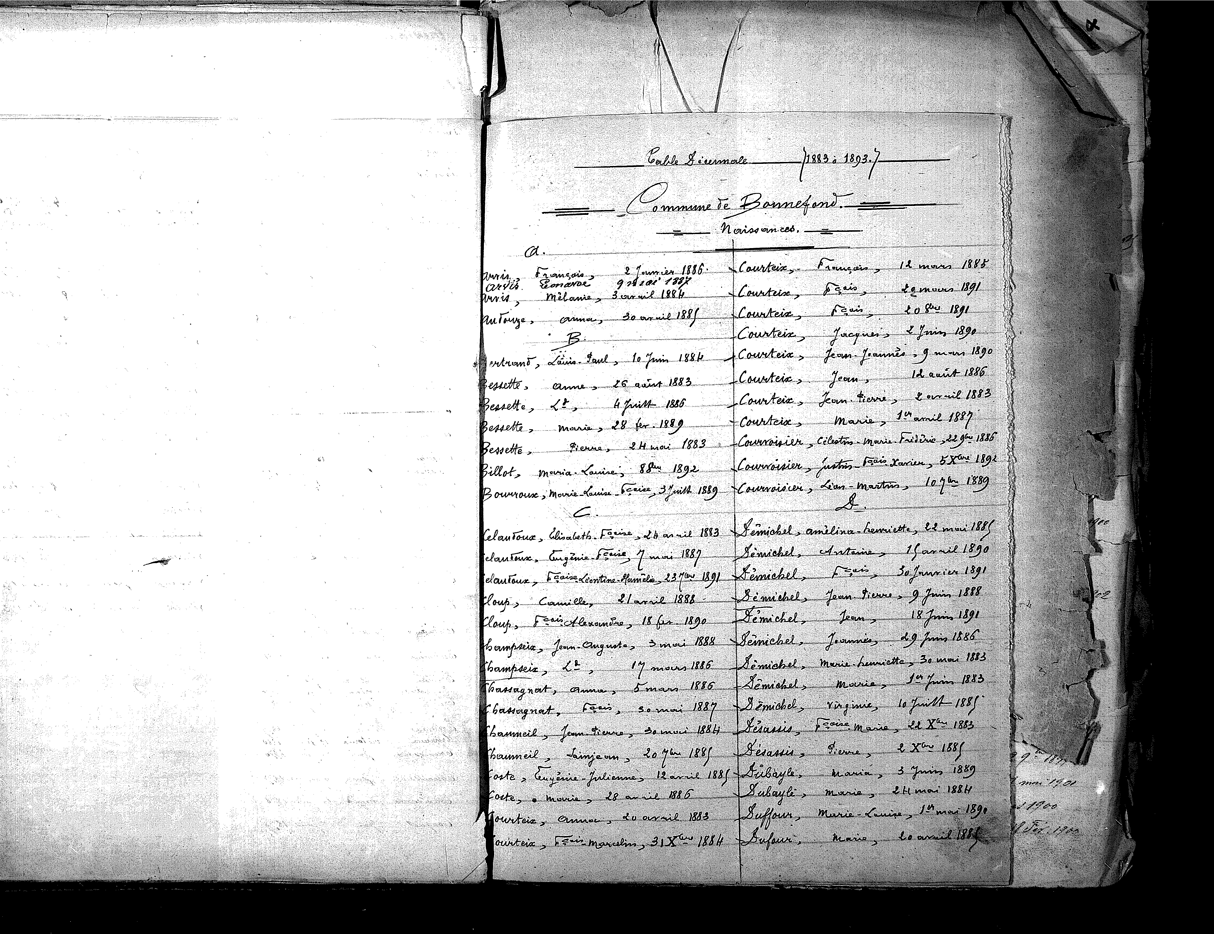 Table Décennale (1883 à 1893.)
Commune de Bonnefond.
Naissances.
A.
Arvis, François, 2 Janvier 1886.
Arvis Léonarde 9 mai 1887
Arvis, Mélanie, 3 avril 1884
Autouze, Anna, 30 avril 1885
B.
Bertrand, Louis-Paul, 10 Juin 1884
Bessette, Anne, 26 août 1883
Bessette, Lt, 4 Juillt 1886
Bessette, Marie, 28 fév. 1889
Bessette, Pierre, 24 mai 1883
Billot, Maria-Louise, 8 8bre 1892
Bourroux, Marie-Louise-Fçoise, 3 Juillt 1889
C.
Celautoux, Elisabeth-Fçoise, 24 avril 1883
Celautoux, Eugénie-Fçoise, 7 mai 1887
Celautoux, Fçoise-Léontine, 23 7bre 1891
Cloup, Camille, 21 avril 1888
Cloup, Fçois-Alexandre, 18 fév. 1890
Champseix, Jean-Auguste, 3 mai 1888
Champseix, Lt, 17 mars 1886
Chassagnat, Anna, 5 mars 1886
Chassagnat, Fçois, 30 mai 1887
Chaumeil, Jean-Pierre, 30 mai 1884
Chaumeil, Linjean, 20 7bre 1885
Coste, Eugénie-Julienne, 12 avril 1885
Coste, Marie, 28 avril 1886
Courteix, Anna, 20 avril 1883
Courteix, Fçois Marcelin, 31 Xbre 1884
Courteix, François, 12 mars 1885
Courteix, Fçois, 22 mars 1891
Courteix, Fçois, 20 8bre 1891
Courteix, Jacques, 2 Juin 1890
Courteix, Jean-Joannès, 9 mars 1890
Courteix, Jean, 12 août 1886
Courteix, Jean-Pierre, 2 avril 1883
Courteix, Marie, 1er avril 1887
Courvoisier, Célestin-Marie-Frédéric, 22 9bre 1886
Courvoisier, Justin-Fçois Xavier, 5 Xbre 1892
Courvoisier, Léon-Martin, 10 7bre 1889
D.
Démichel, Amélina-henriette, 22 mai 1885
Démichel, Antoine, 15 avril 1890
Démichel, Fçois, 30 Janvier 1891
Démichel, Jean-Pierre, 9 Juin 1888
Démichel, Jean, 18 Juin 1891
Démichel, Joannès, 29 Juin 1886
Démichel, Marie-henriette, 30 mai 1883
Démichel, Marie, 1er Juin 1883
Démichel, Virginie, 10 Juillt 1885
Désassis, Fçoise-Marie, 22 Xbre 1883
Désassis, Pierre, 2 Xbre 1885
Dubayle, Maria, 3 Juin 1889
Dubayle, Marie, 24 mai 1884
Duffour, Marie-Louise, 1er mai 1890
Dufour, Marie, 20 avril 1885
mai 1901
1900